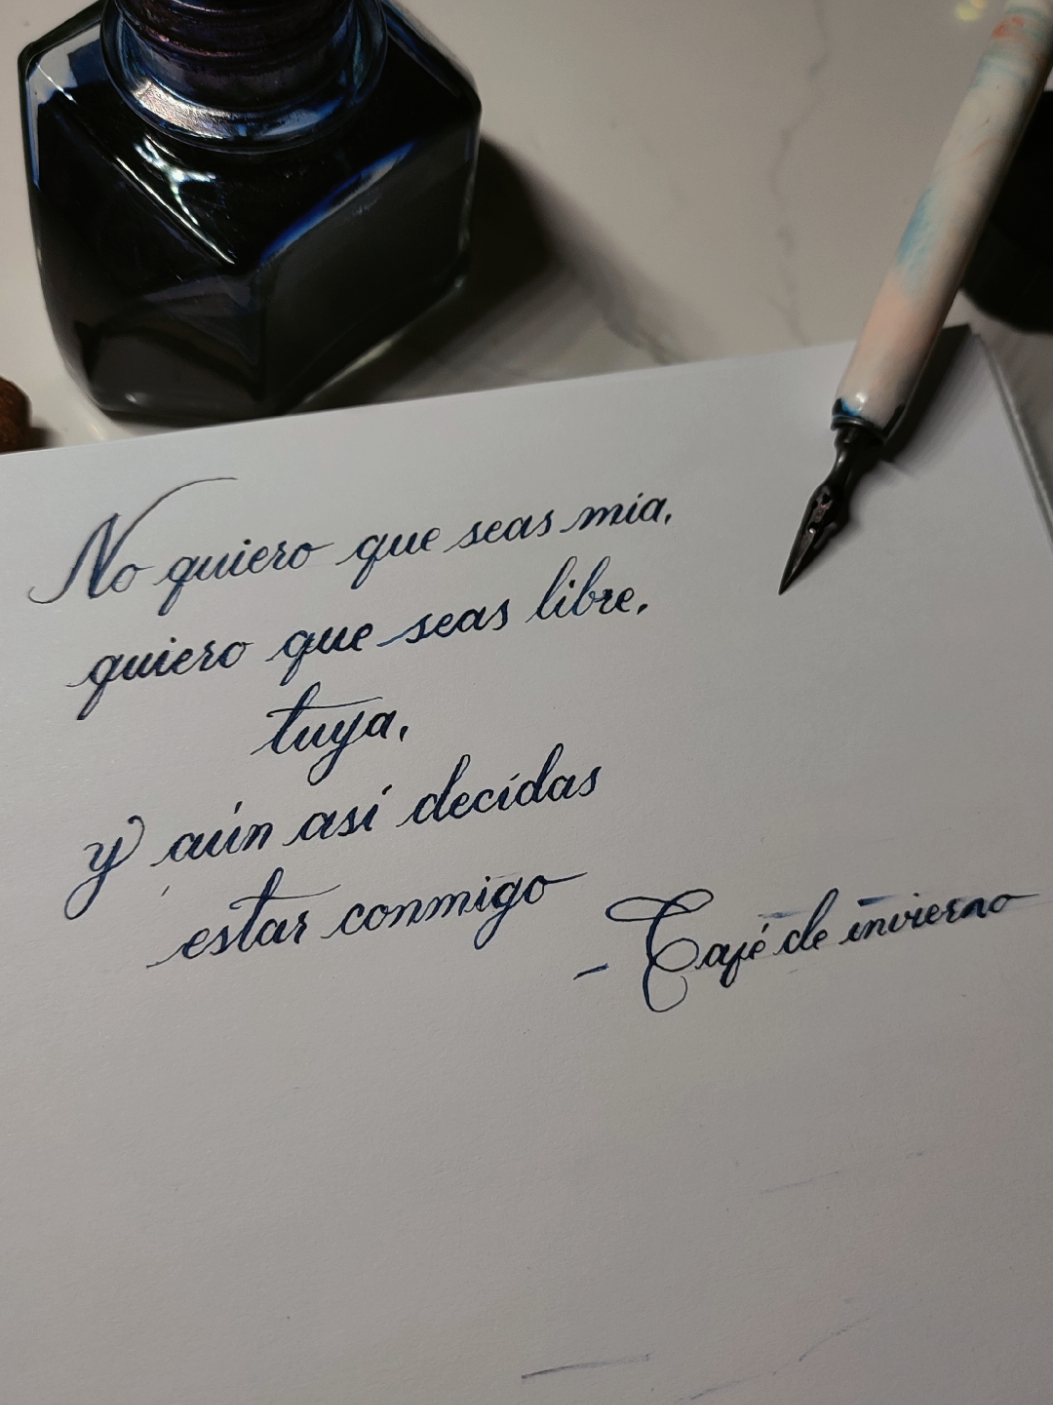 No quiero que seas mía,
quiero que seas libre,
tuya,
y aún así decidas
estar conmigo
- Café de invierno